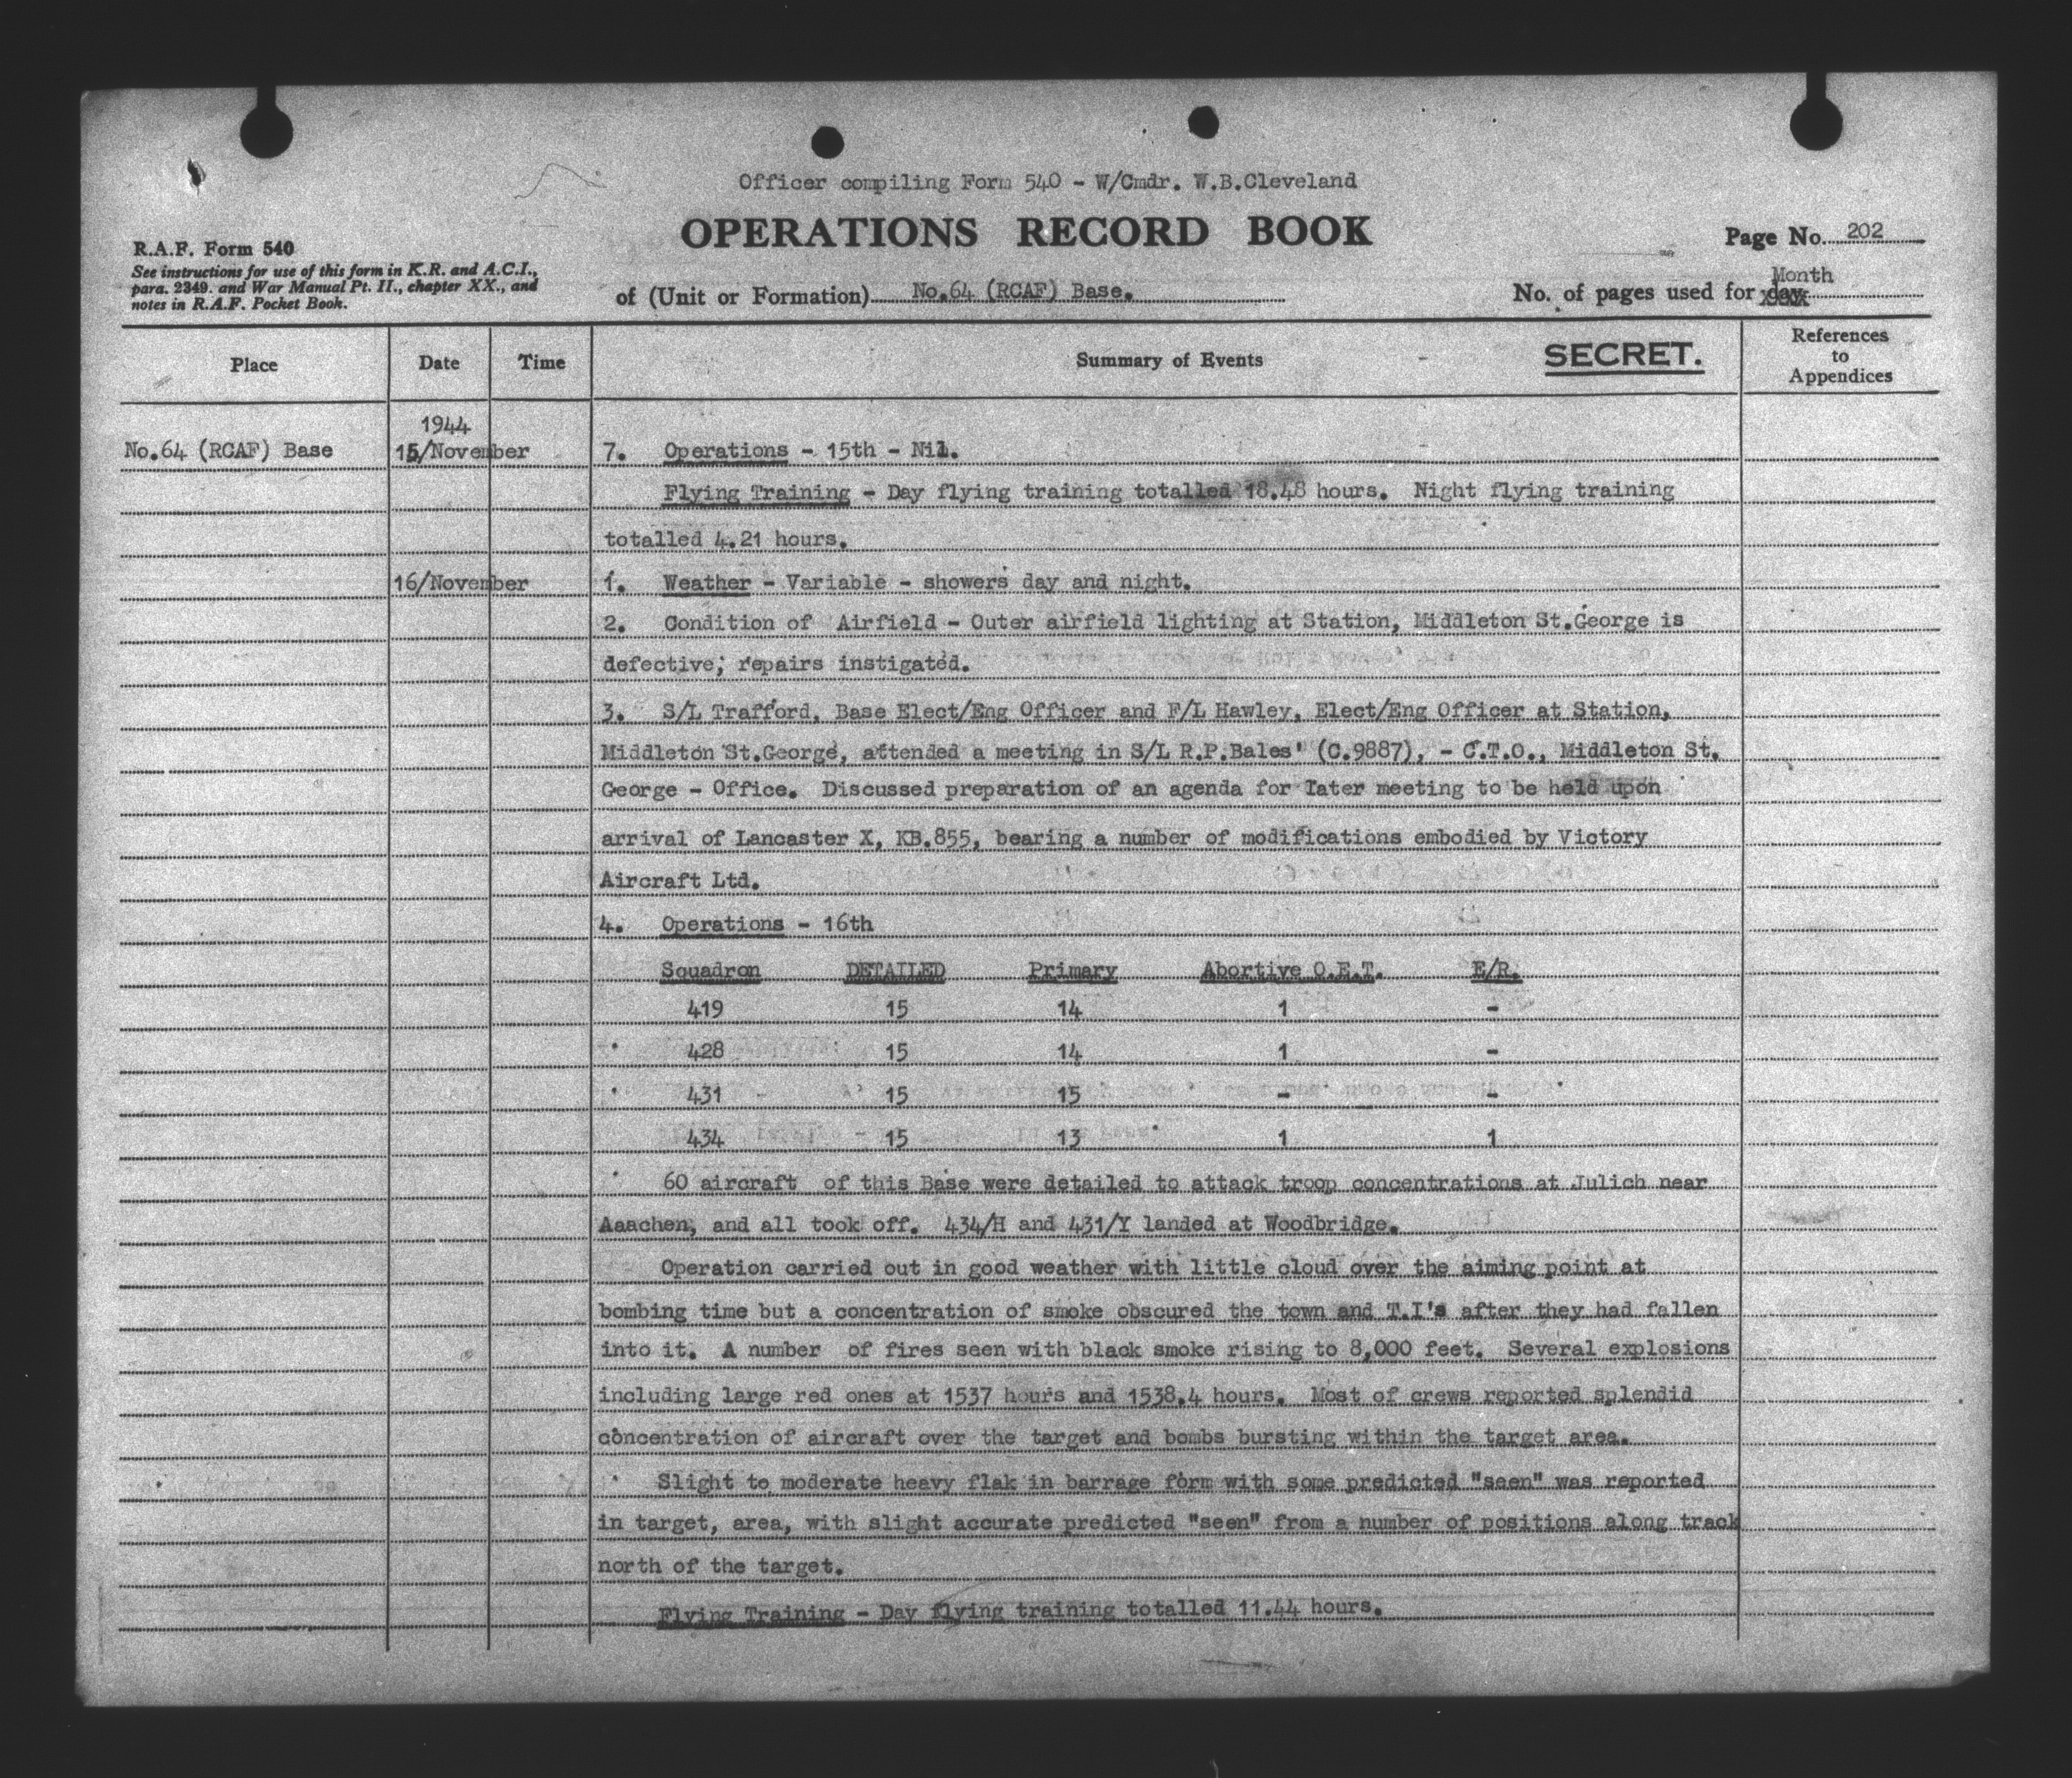 Officer compiling Form 540 - W/Cmdr. W.B.Cleveland
OPERATIONS RECORD BOOK
R.A.F. Form 540
See instructions for use of this form in K.R. and A.C.I.,
para. 2349. and War Manual Pt. II., chapter XX., and
notes in R.A.F. Pocket Book.
Page No. 202
of (Unit or Formation) No.64 (RCAF) Base.
Month
No. of pages used for day
Place Date Time Summary of Events SECRET. References to Appendices
1944
No.64 (RCAF) Base 15/November 7. Operations - 15th - Nil.
Flying Training - Day flying training totalled 18.48 hours. Night flying training
totalled 4.21 hours.
16/November 1. Weather - Variable - showers day and night.
2. Condition of Airfield - Outer airfield lighting at Station, Middleton St.George is
defective; repairs instigated.
3. S/L Trafford, Base Elect/Eng Officer and F/L Hawley, Elect/Eng Officer at Station,
Middleton St.George, attended a meeting in S/L R.P.Bales' (C.9887), - C.T.O., Middleton St.
George - Office. Discussed preparation of an agenda for later meeting to be held upon
arrival of Lancaster X, KB.855, bearing a number of modifications embodied by Victory
Aircraft Ltd.
4. Operations - 16th
Squadron DETAILED Primary Abortive O.E.T. E/R.
419 15 14 1 -
428 15 14 1 -
431 15 15 - -
434 15 13 1 1
60 aircraft of this Base were detailed to attack troop concentrations at Julich near
Aaachen, and all took off. 434/H and 431/Y landed at Woodbridge.
Operation carried out in good weather with little cloud over the aiming point at
bombing time but a concentration of smoke obscured the town and T.I's after they had fallen
into it. A number of fires seen with black smoke rising to 8,000 feet. Several explosions
including large red ones at 1537 hours and 1538.4 hours. Most of crews reported splendid
concentration of aircraft over the target and bombs bursting within the target area.
Slight to moderate heavy flak in barrage form with some predicted "seen" was reported
in target, area, with slight accurate predicted "seen" from a number of positions along track
north of the target.
Flying Training - Day flying training totalled 11.44 hours.